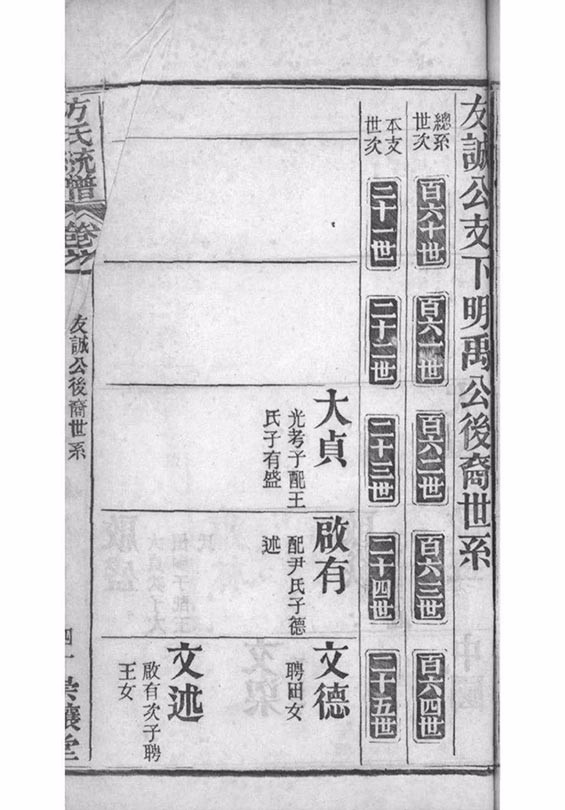 友誠公支下明禹公後裔世系
總系世次
百六十世
百六一世
百六二世
百六三世
百六四世
本支世次
二十一世
二十二世
二十三世
二十四世
二十五世
大貞
光考子配王
氏子有盛
啟有
配尹氏子德
述
文德
聘田女
文述
啟有次子聘
王女
方氏統譜
卷之
友誠公後裔世系
四十
堂